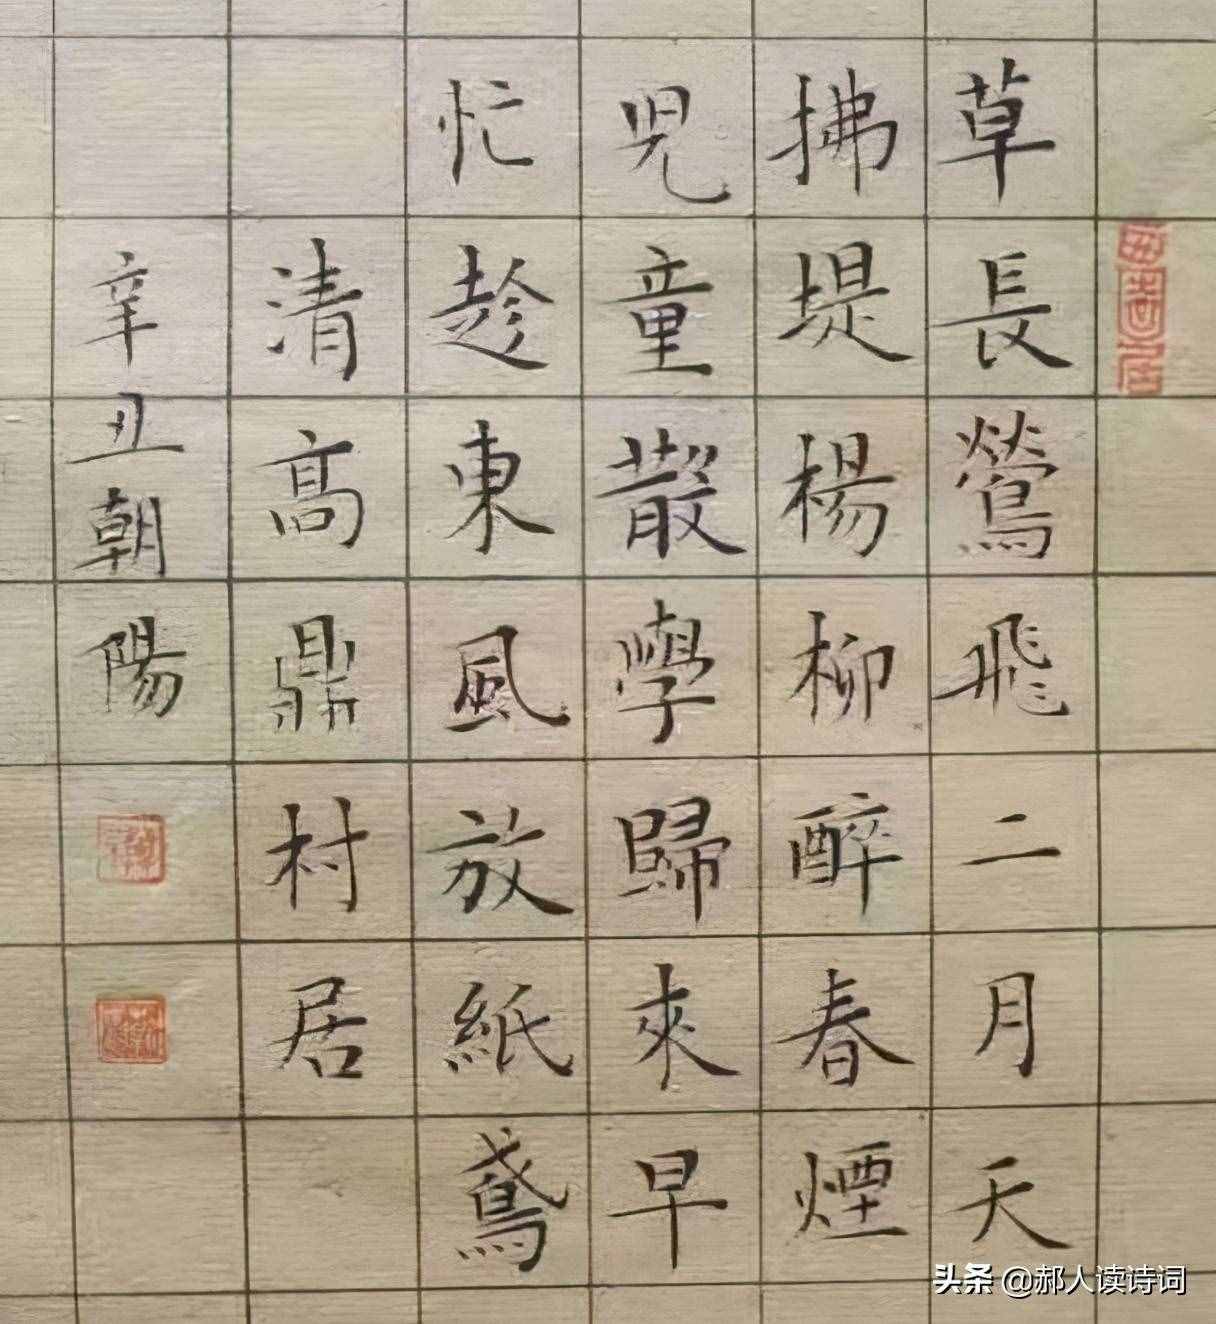 草長鶯飛二月天
拂堤楊柳醉春煙
兒童散學歸來早
忙趁東風放紙鳶
清高鼎村居
辛丑朝陽
头条 @郝人读诗词